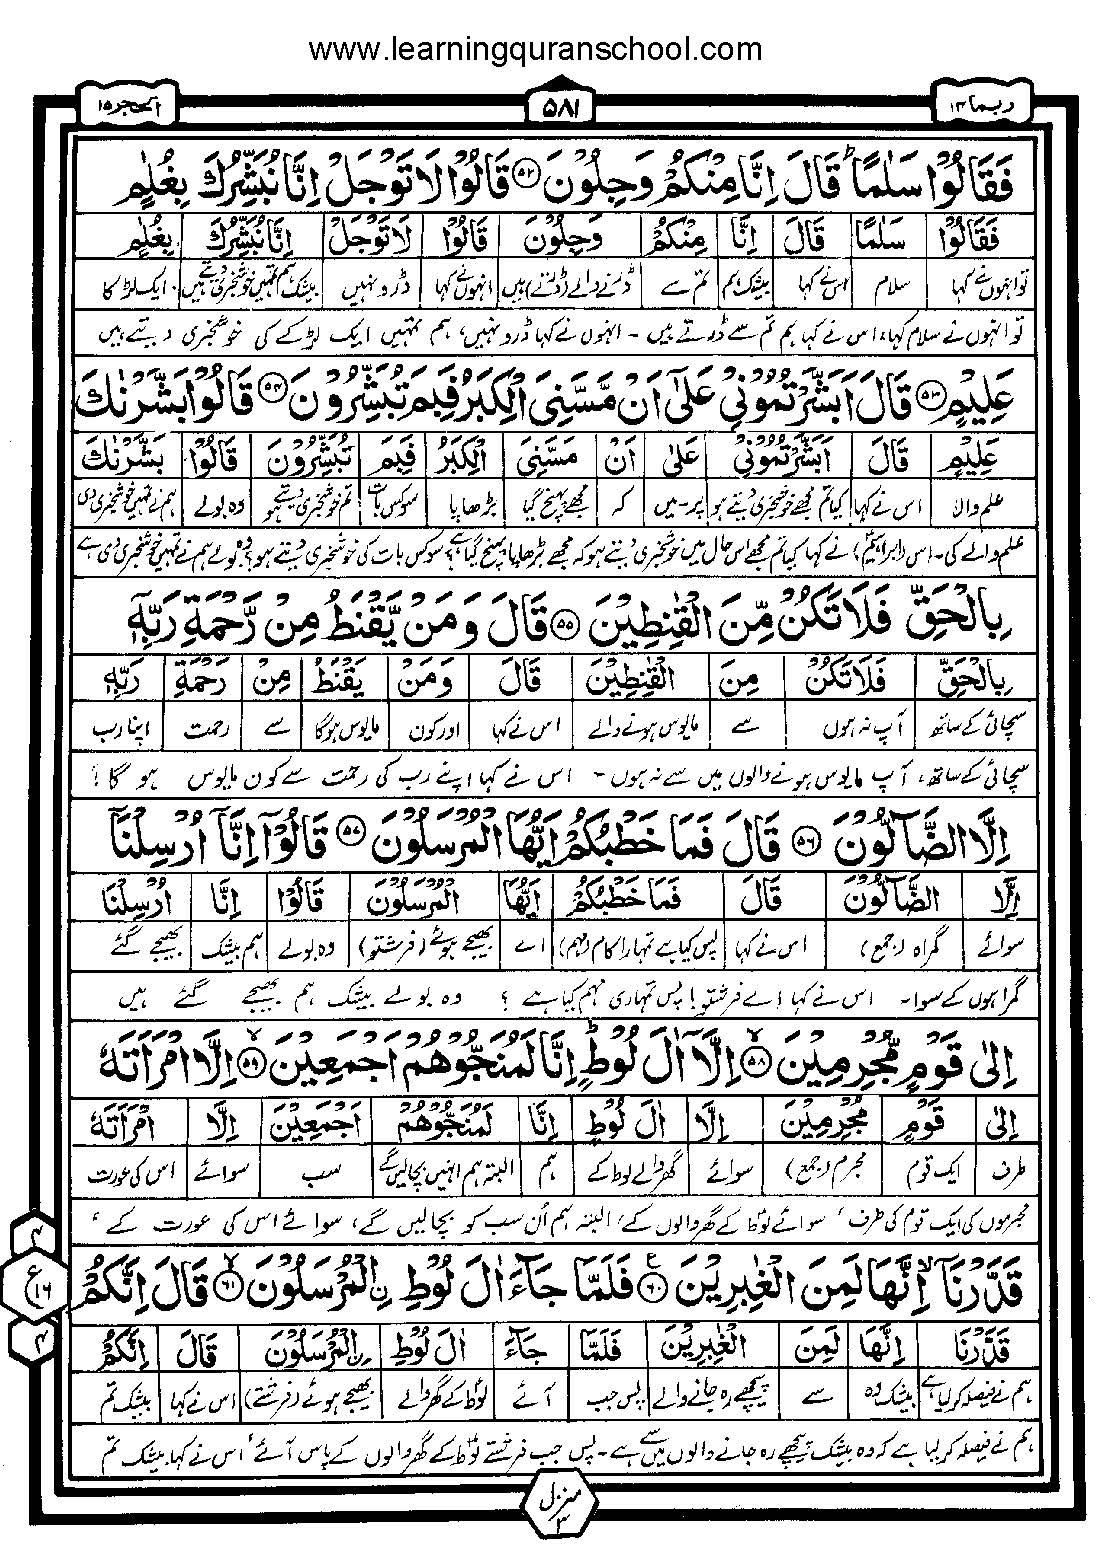 www.learningquranschool.com
ربما ۱۴ ۵۸۱ الحجر ۱۵
فَقَالُوْا سَلٰمًا ؕ قَالَ اِنَّا مِنْكُمْ وَجِلُوْنَ ﴿۵۲﴾ قَالُوْا لَا تَوْجَلْ اِنَّا نُبَشِّرُكَ بِغُلٰمٍ
فَقَالُوْا سَلٰمًا قَالَ اِنَّا مِنْكُمْ وَجِلُوْنَ قَالُوْا لَا تَوْجَلْ اِنَّا نُبَشِّرُكَ بِغُلٰمٍ
تو انہوں نے کہا سلام اس نے کہا بیشک ہم تم سے ڈرنے والے (ڈرتے) ہیں انہوں نے کہا ڈرو نہیں بیشک ہم تمہیں خوشخبری دیتے ہیں ایک لڑکا
تو انہوں نے سلام کہا، اس نے کہا ہم تم سے ڈرتے ہیں - انہوں نے کہا ڈرو نہیں، ہم تمہیں ایک لڑکے کی خوشخبری دیتے ہیں
عَلِيْمٍ ﴿۵۳﴾ قَالَ اَبَشَّرْتُمُوْنِيْ عَلٰٓى اَنْ مَّسَّنِيَ الْكِبَرُ فَبِمَ تُبَشِّرُوْنَ ﴿۵۴﴾ قَالُوْا بَشَّرْنٰكَ
عَلِيْمٍ قَالَ اَبَشَّرْتُمُوْنِيْ عَلٰى اَنْ مَسَّنِيَ الْكِبَرُ فَبِمَ تُبَشِّرُوْنَ قَالُوْا بَشَّرْنٰكَ
علم والا اس نے کہا کیا تم مجھے خوشخبری دیتے ہو پر - میں کہ مجھے پہنچ گیا بڑھاپا سو کس بات تم خوشخبری دیتے ہو وہ بولے ہم نے تمہیں خوشخبری دی
علم والے کی - اس (ابراہیمؑ) نے کہا کیا تم مجھے اس حال میں خوشخبری دیتے ہو کہ مجھے بڑھاپا پہنچ گیا ہے؟ سو کس بات کی خوشخبری دیتے ہو؟ وہ بولے ہم نے تمہیں خوشخبری دی ہے
بِالْحَقِّ فَلَا تَكُنْ مِّنَ الْقٰنِطِيْنَ ﴿۵۵﴾ قَالَ وَمَنْ يَّقْنَطُ مِنْ رَّحْمَةِ رَبِّهٖٓ
بِالْحَقِّ فَلَا تَكُنْ مِنَ الْقٰنِطِيْنَ قَالَ وَمَنْ يَقْنَطُ مِنْ رَحْمَةِ رَبِّهٖ
سچائی کے ساتھ آپ نہ ہوں سے مایوس ہونے والے اس نے کہا اور کون مایوس ہوگا سے رحمت اپنا رب
سچائی کے ساتھ، آپ مایوس ہونے والوں میں سے نہ ہوں - اس نے کہا اپنے رب کی رحمت سے کون مایوس ہو گا؟
اِلَّا الضَّآلُّوْنَ ﴿۵۶﴾ قَالَ فَمَا خَطْبُكُمْ اَيُّهَا الْمُرْسَلُوْنَ ﴿۵۷﴾ قَالُوْٓا اِنَّآ اُرْسِلْنَآ
اِلَّا الضَّآلُّوْنَ قَالَ فَمَا خَطْبُكُمْ اَيُّهَا الْمُرْسَلُوْنَ قَالُوْا اِنَّا اُرْسِلْنَا
سوائے گمراہ (جمع) اس نے کہا پس کیا ہے تمہارا کام (مہم) اے بھیجے ہوئے (فرشتو) وہ بولے ہم بیشک بھیجے گئے
گمراہوں کے سوا - اس نے کہا اے فرشتو! پس تمہاری مہم کیا ہے؟ وہ بولے بیشک ہم بھیجے گئے ہیں
اِلٰى قَوْمٍ مُّجْرِمِيْنَ ﴿۵۸﴾ۙ اِلَّآ اٰلَ لُوْطٍ ؕ اِنَّا لَمُنَجُّوْهُمْ اَجْمَعِيْنَ ﴿۵۹﴾ۙ اِلَّا امْرَاَتَهٗ
اِلٰى قَوْمٍ مُجْرِمِيْنَ اِلَّا اٰلَ لُوْطٍ اِنَّا لَمُنَجُّوْهُمْ اَجْمَعِيْنَ اِلَّا امْرَاَتَهٗ
طرف ایک قوم مجرم (جمع) سوائے گھر والے لوط کے ہم البتہ ہم انہیں بچالیں گے سب سوائے اس کی عورت
مجرموں کی ایک قوم کی طرف، سوائے لوطؑ کے گھر والوں کے، البتہ ہم اُن سب کو بچالیں گے، سوائے اس کی عورت کے،
قَدَّرْنَآ ۙ اِنَّهَا لَمِنَ الْغٰبِرِيْنَ ﴿۶۰﴾ع فَلَمَّا جَآءَ اٰلَ لُوْطِ ۨالْمُرْسَلُوْنَ ﴿۶۱﴾ۙ قَالَ اِنَّكُمْ
قَدَّرْنَا اِنَّهَا لَمِنَ الْغٰبِرِيْنَ فَلَمَّا جَآءَ اٰلَ لُوْطِ ۨالْمُرْسَلُوْنَ قَالَ اِنَّكُمْ
ہم نے فیصلہ کر لیا ہے بیشک وہ سے پیچھے رہ جانے والے پس جب آئے لوطؑ کے گھر والے بھیجے ہوئے (فرشتے) اس نے کہا بیشک تم
ہم نے فیصلہ کر لیا ہے کہ وہ بیشک پیچھے رہ جانے والوں میں سے ہے - پس جب فرشتے لوطؑ کے گھر والوں کے پاس آئے، اس نے کہا بیشک تم
۴
ع ۱۶
۴
منزل ۳